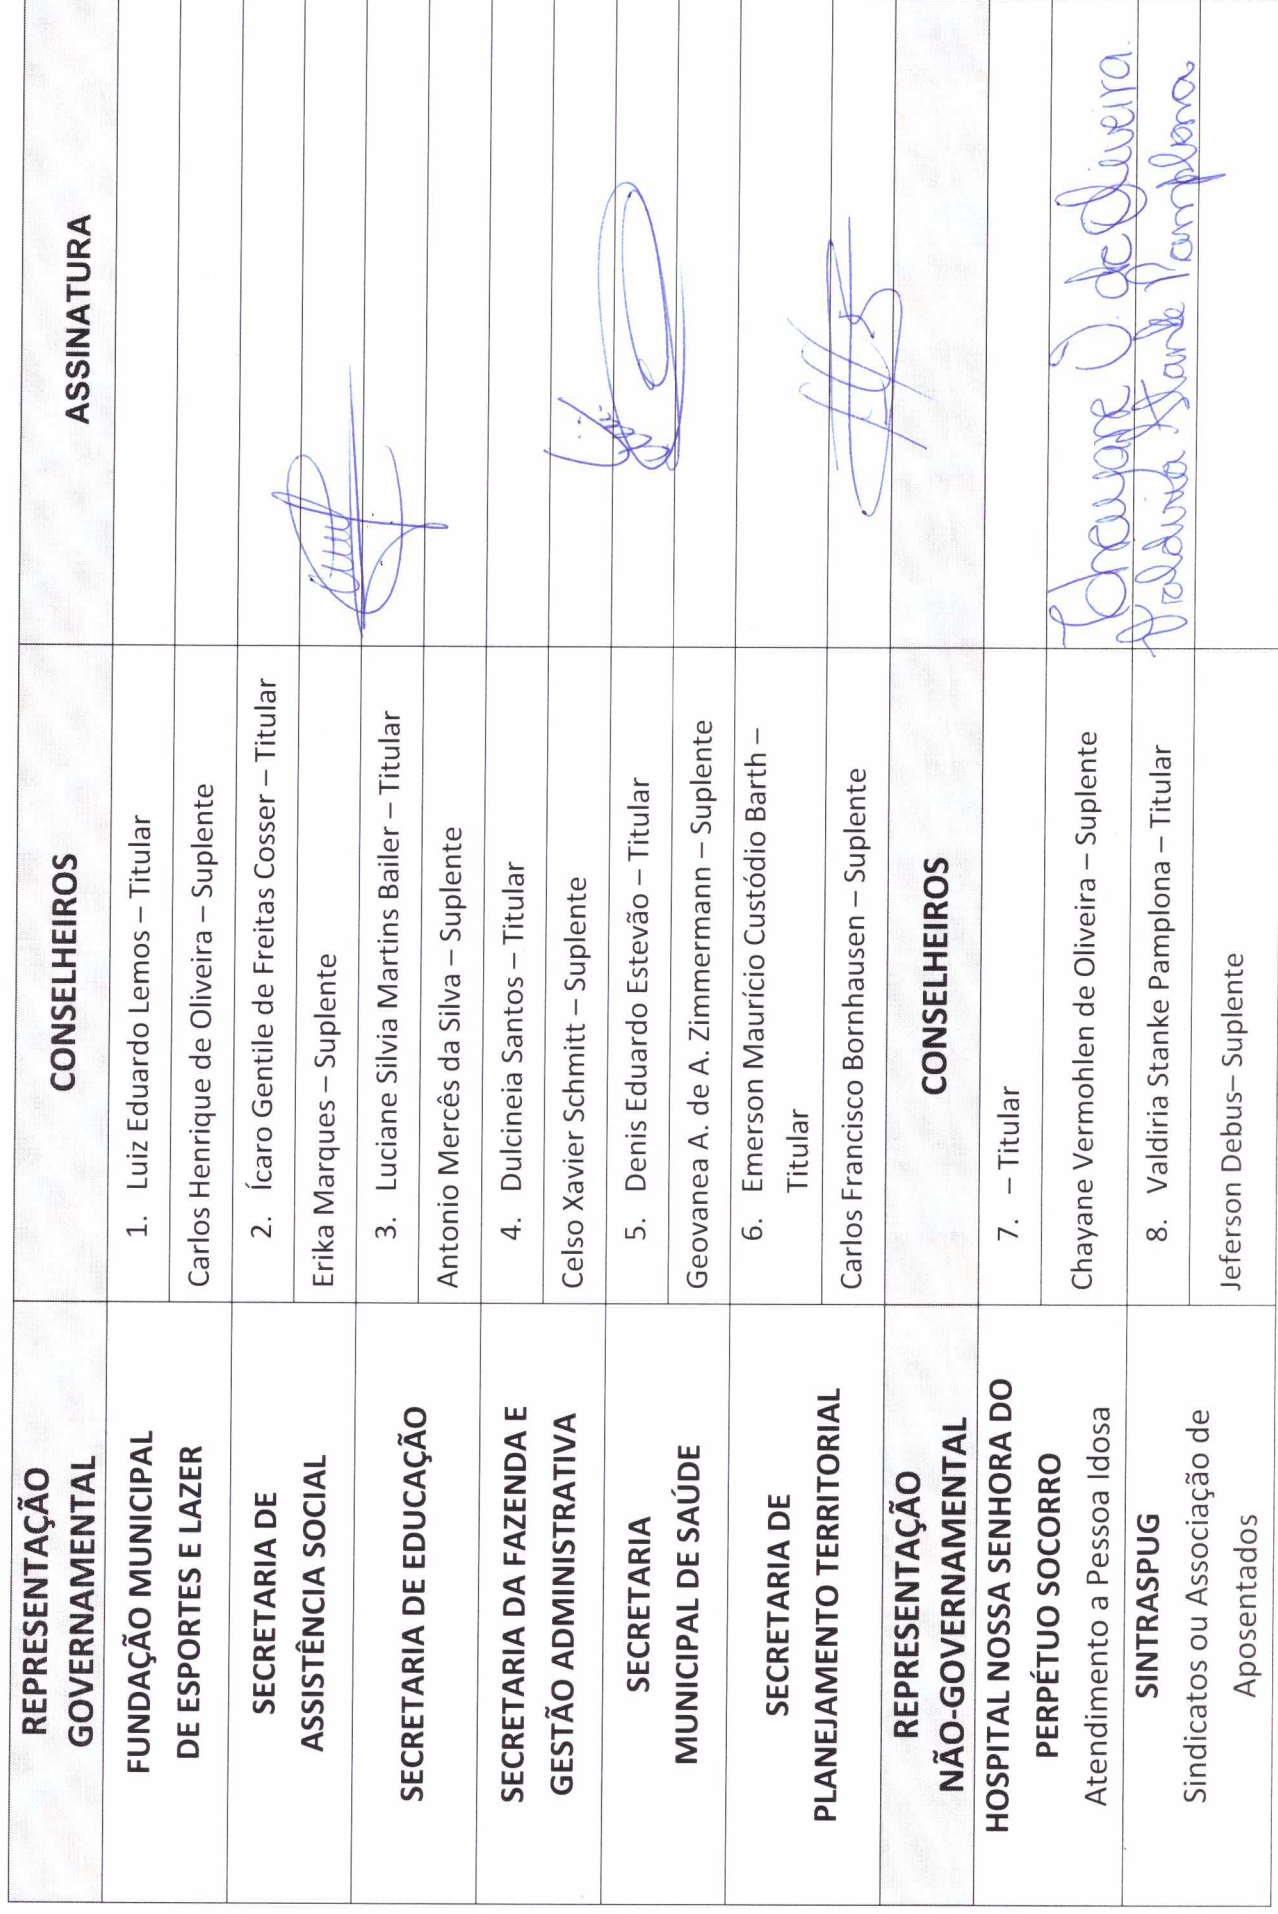 REPRESENTAÇÃO
GOVERNAMENTAL
CONSELHEIROS
ASSINATURA
FUNDAÇÃO MUNICIPAL
DE ESPORTES E LAZER
1. Luiz Eduardo Lemos – Titular
Carlos Henrique de Oliveira – Suplente
SECRETARIA DE
ASSISTÊNCIA SOCIAL
2. Ícaro Gentile de Freitas Cosser – Titular
Erika Marques – Suplente
SECRETARIA DE EDUCAÇÃO
3. Luciane Silvia Martins Bailer – Titular
Antonio Mercês da Silva – Suplente
SECRETARIA DA FAZENDA E
GESTÃO ADMINISTRATIVA
4. Dulcineia Santos – Titular
Celso Xavier Schmitt – Suplente
SECRETARIA
MUNICIPAL DE SAÚDE
5. Denis Eduardo Estevão – Titular
Geovanea A. de A. Zimmermann – Suplente
SECRETARIA DE
PLANEJAMENTO TERRITORIAL
6. Emerson Maurício Custódio Barth –
Titular
Carlos Francisco Bornhausen – Suplente
REPRESENTAÇÃO
NÃO-GOVERNAMENTAL
CONSELHEIROS
HOSPITAL NOSSA SENHORA DO
PERPÉTUO SOCORRO
Atendimento a Pessoa Idosa
7. – Titular
Chayane Vermohlen de Oliveira – Suplente
Chayane V. de Oliveira.
SINTRASPUG
Sindicatos ou Associação de
Aposentados
8. Valdiria Stanke Pamplona – Titular
Valdiria Stanke Pamplona
Jeferson Debus– Suplente